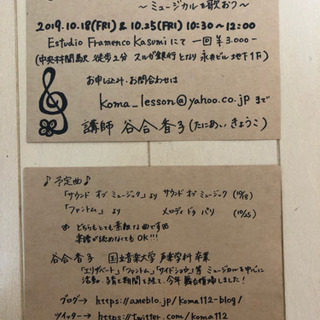 ～ミュージカルを歌おう～
2019.10.18(FRI) & 10.25(FRI) 10:30～12:00
Estudio Framenco Kasumiにて 一回¥3,000-
(中央林間駅 徒歩2分 スルガ銀行となり 永井ビル 地下1F)
お申し込み・お問合わせは
koma_lesson@yahoo.co.jp まで
講師 谷合香子(たにあい きょうこ)
♪予定曲♪
「サウンド オブ ミュージック」より サウンド オブ ミュージック (10/18)
「ファントム」より メロディ ドゥ パリ (10/25)
どちらもとても素敵な曲です
楽譜が読めなくてもOK!!!
谷合香子 国立音楽大学 声楽学科 卒業
「エリザベート」「ファントム」「サイドショウ」等 ミュージカルを中心に
活動。
ブログ→ https://ameblo.jp/koma112-blog/
ツイッター→ https://twitter.com/koma112